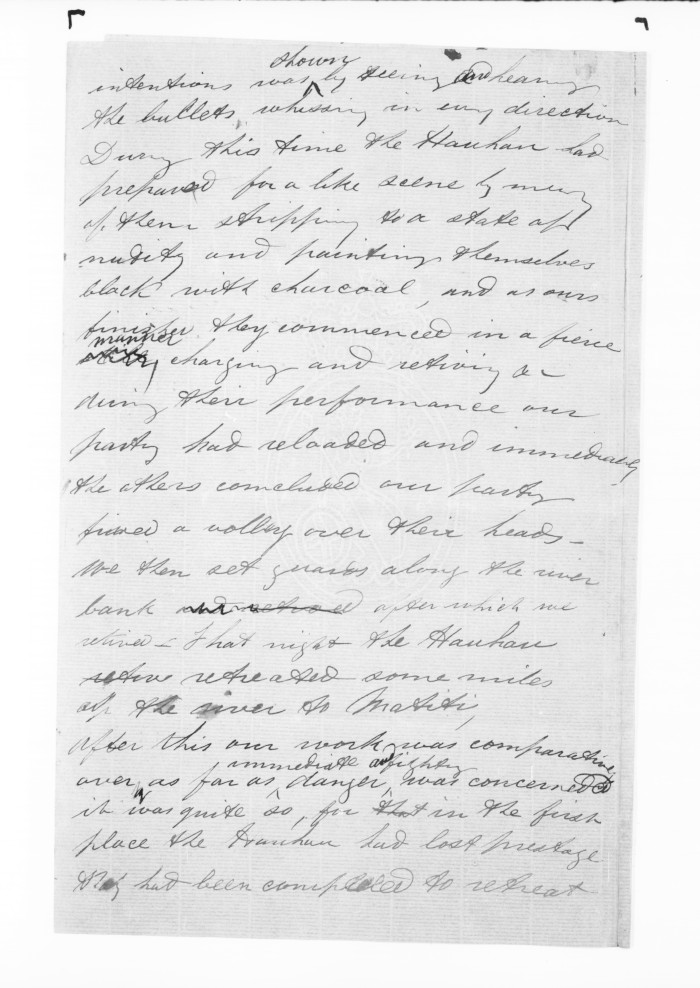 shown
intentions was by seeing and hearing
the bullets whissing in every direction
During this time the Hauhau had
prepared for a like scene by many
of them stripping to a state of
nudity and painting themselves
black with charcoal, and as ours
finished they commenced in a fierce
manner
charging and retiring &c
during their performance our
party had reloaded and immediately
the others concluded our party
fired a volley over their heads -
we then set guards along the river
bank and retired after which we
retired - That night the Hauhau
retire retreated some miles
up the river to Matiti,
after this our work was comparative
immediate and fighting
over, as far as danger, was concerned
it was quite so, for that in the first
place the Hauhau had lost prestage
they had been compelled to retreat